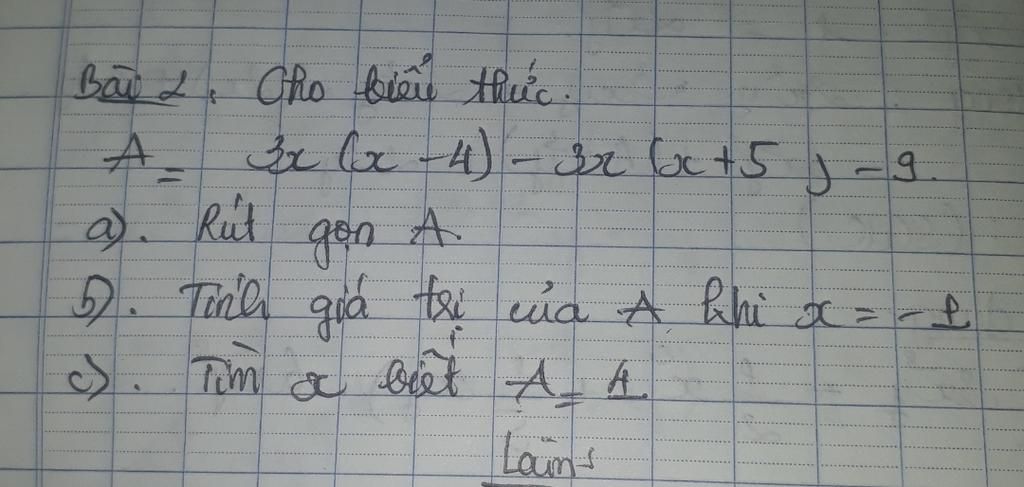 Bài 2. Cho biểu thức.
A = 3x (x - 4) - 3x (x + 5) - 9.
a). Rút gọn A.
b). Tính giá trị của A khi x = - 1
c). Tìm x biết A = 1
Làm